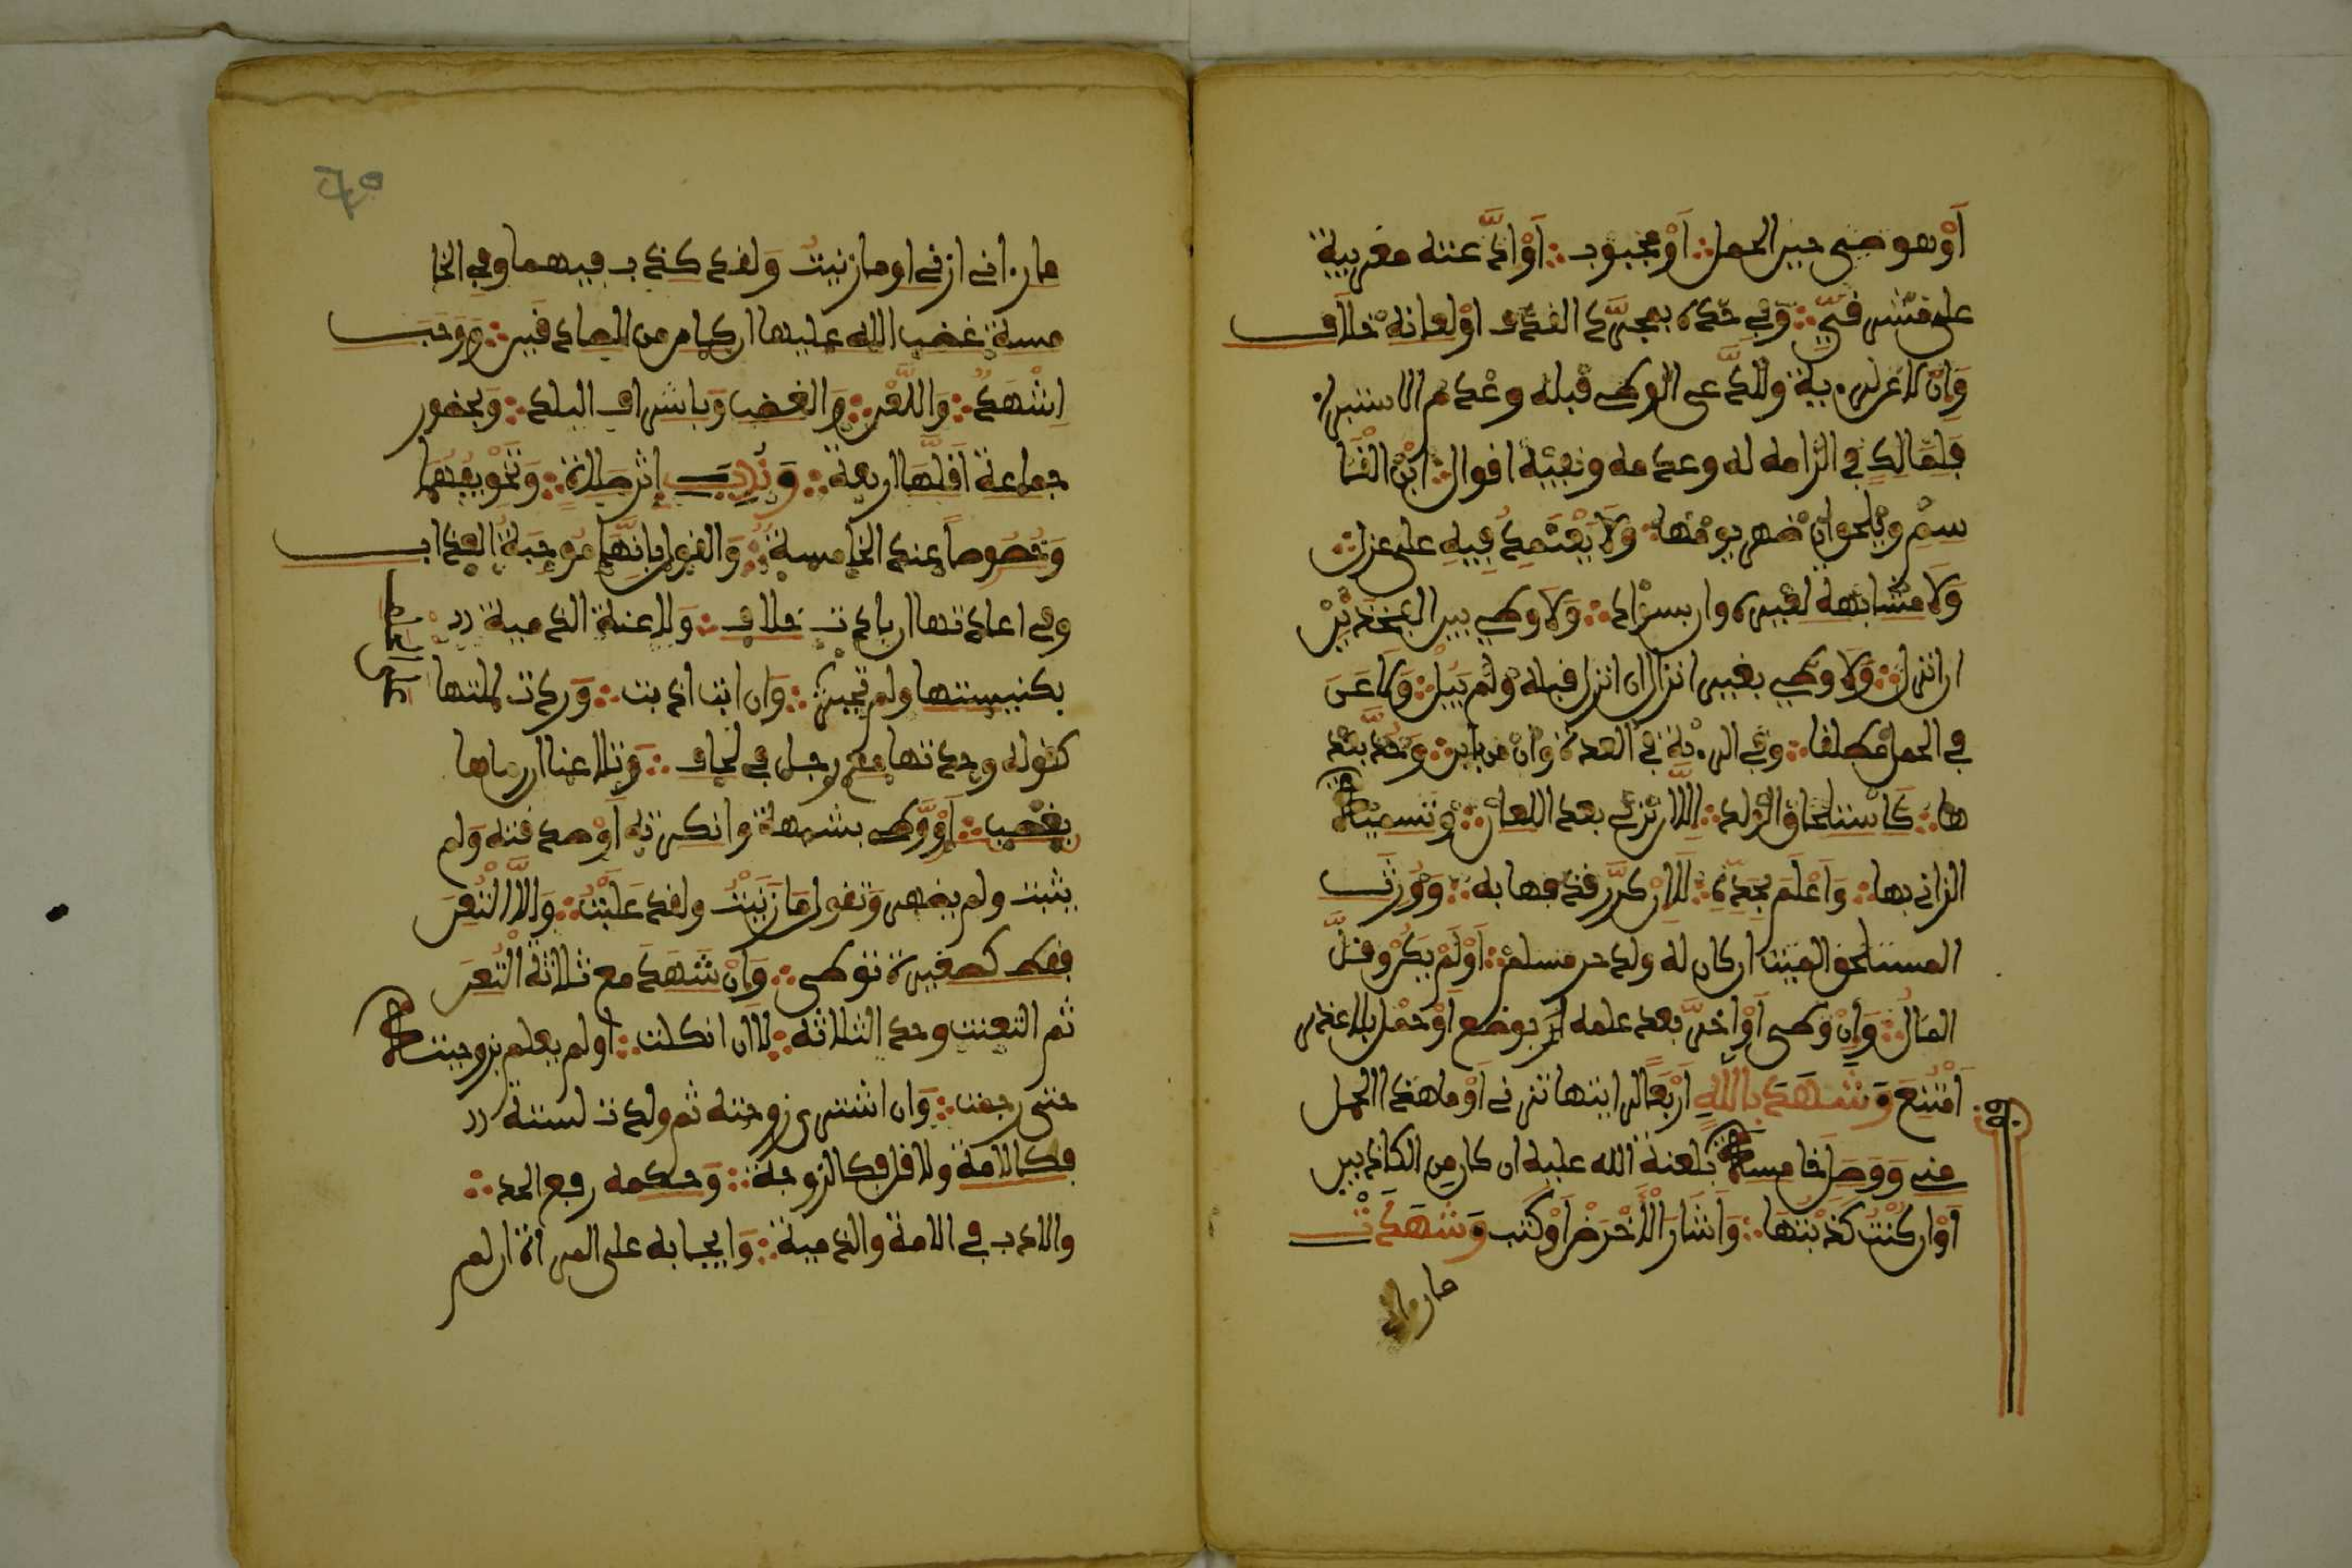 أَوْ هو صبى حين الحمل أَوْ مجبوب أَوْ ادَّعته مغربية
على مشرقيّ وَفِي حَدِّه بمجرّد القذف اوْ لعانه خلاف
وَإِن لاعن لرؤية وادَّعى الوطى قبله وعدم الاستبراء
فَلِمَالِكٍ في الزامه له وعدمه ونفيه اقوال ابْن القَا
سم ويلحق ان ظهر يومها وَلَا يَعْتَمِدُ فِيهِ على عزل
وَلَا مشابهة لغيره وان بسواد وَلَا وطى بين الفخذيْن
ان انزل وَلَا وطى بغير انزال ان انزل قبله ولم يبل وَلَاعَنَ
في الحمل مطلقا وفي الرؤية في العدة وان من باين وَحُدَّ بعد
ها كَاسْتلحاق الولد إِلَّا ان تزني بعد اللعان وتسمية
الزاني بها وَأَعْلَم بِحَدِّهِ لَا ان كرّر قذفها به وَوَرِثَ
المستلحق الميت ان كان له ولد حر مسلم أَوْ لَمْ يَكُنْ وقلَّ
المَال وَإِنْ وطى أَوْ اخرَّ بعد علمه بوضع أَوْ حمْل بلا عذر
اَمْتُنِعَ وَشَهَدَ بِاللَّهِ أَرْبَعًا لرايتها تزني أَوْ ما هذا الحمل
مني وَوَصَلَ خامسة بلعنة الله عليه ان كان مِن الكاذبين
أَوْ ان كُنْتُ كَذَبْتُهَا وَأَشَارَ الأَخْرَسُ أَوْ كَتب وَشَهَدَتْ
ما رءا
ما رءاني ازني او ما زنيتُ وَلقد كذب فيهما وفي الخا
مسة غضب الله عليها ان كان من الصادقين وَوَجَبَ
اشْهَدُ وَاللَّعْن وَالغضب وَباشراف البلد وَبحضور
جماعة اقلّها اربعة وَنُدِبَ إثر صلاة وَتَخْوِيفُهُمَا
وَخُصُوصاً عند الخامسة وَالقول بِأَنَّهَا مُوجِبَةُ العذاب
وفي اعادتها ان بدات خلاف وَلاعنت الذمية
بكنيستها ولم تجبر وَان ابت ادبت وَردت لملتها
كقوله وجدتها مع رجل في لحاف وَتلاعنا ان رماها
بغصب أَوْ وَطى بشبهة وانكرته أَوْ صدقته وَلم
يثبت ولم يظهر وَتقول مَا زَنَيْتُ ولقد غَلَبَت وَإِلَّا الْتُعِنَ
فقط كصغيرة توطى وَإِنْ شَهَدَ مع ثلاثة الْتُعِنَ
ثم التعنت وحد الثلاثة لا ان نكلت أو لم يعلم بزوجيته
حتى رجمت وَان اشترى زوجته ثم ولدت لستة
فكالامة ولاقل فكالزوجة وَحكمه رفع الحد
والادب في الامة والذمية وَايجابه على المراة ان لم